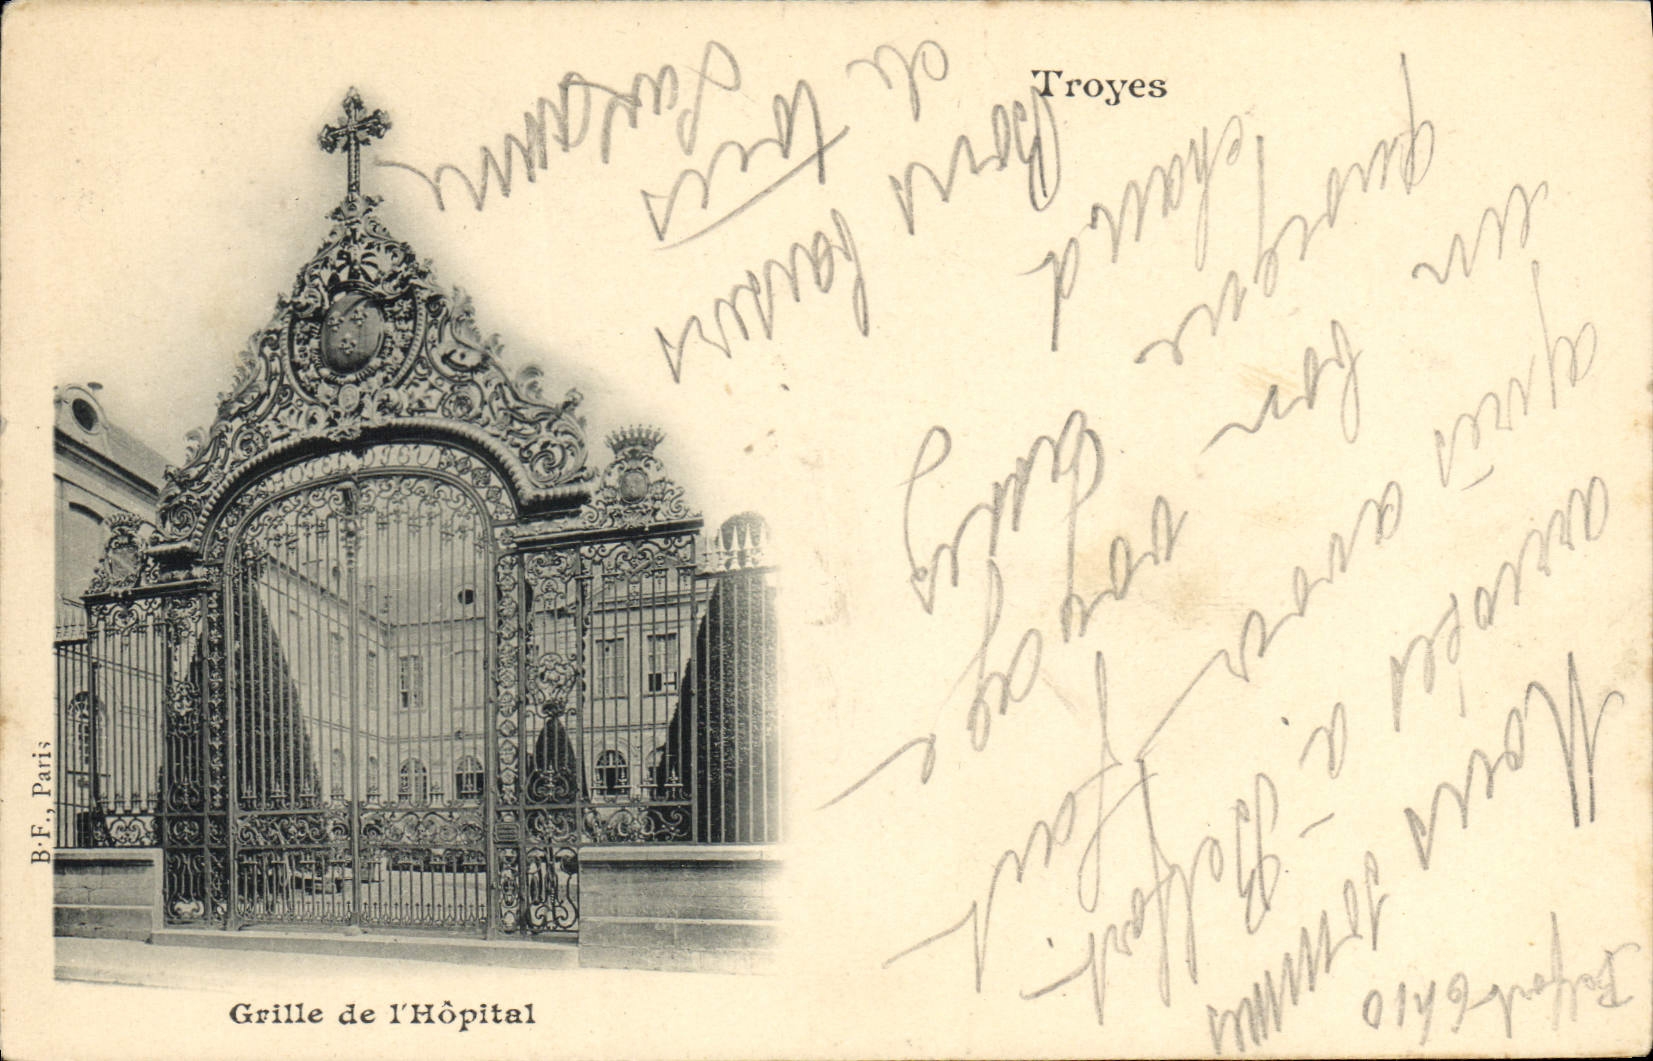 Troyes
Belfort 6h10
Nous sommes
arrivés à Belfort
après avoir fait
un bon voyage
quoique
chaud
Bons baisers
de tous
Suzanne
B.F., Paris
Grille de l'Hôpital